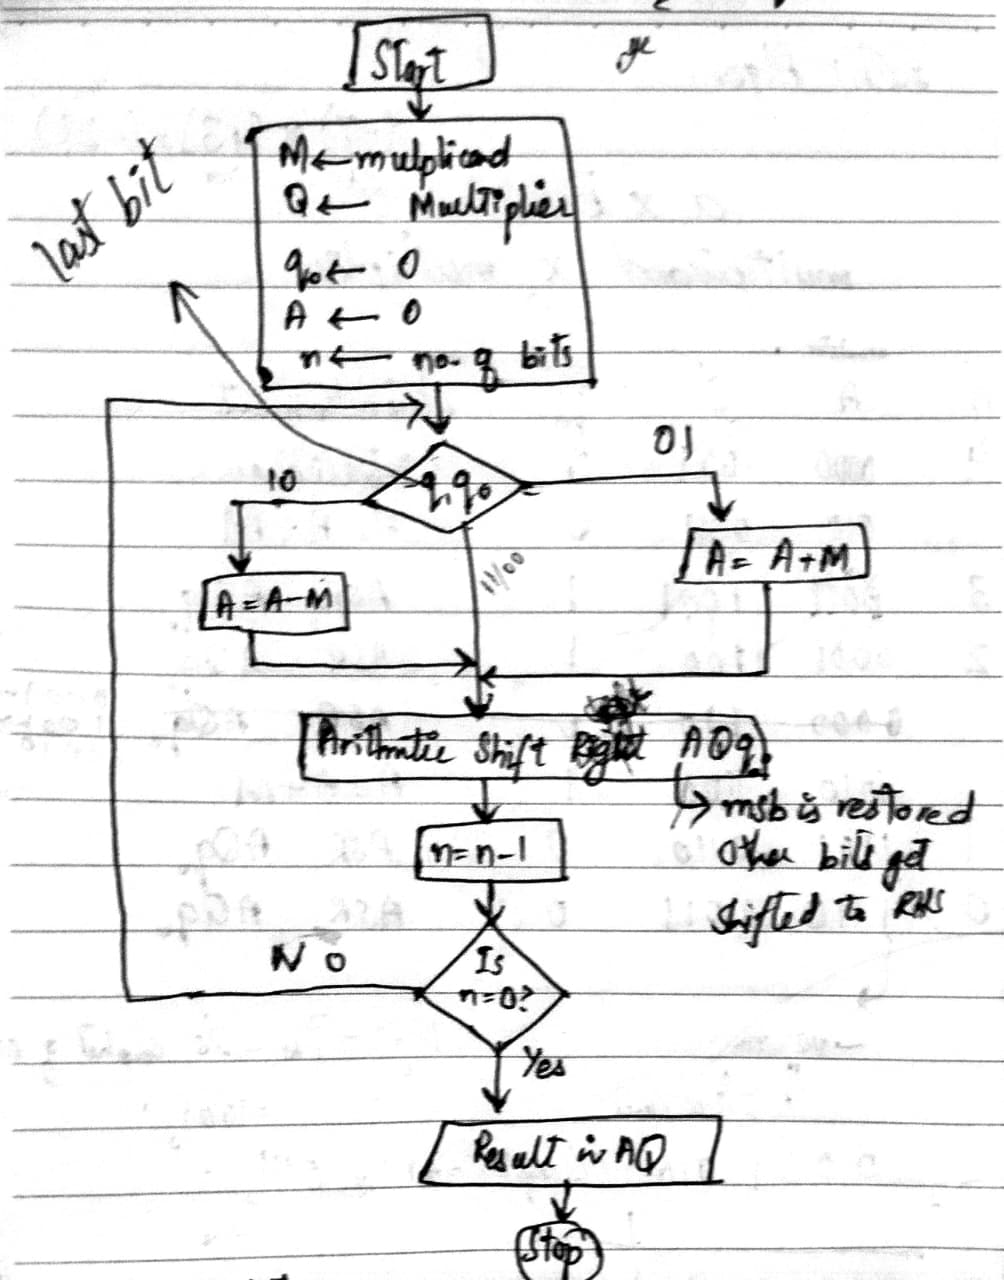 Start
last bit
M ← mulplicand
Q ← Multiplier
q₀ ← 0
A ← 0
n ← no. of bits
q₁q₀
10
01
11/00
A = A-M
A = A+M
Arithmetic Shift Right AQq₀
↳ msb is restored
other bits get
shifted to RHS
n = n-1
Is
n=0?
No
Yes
Result in AQ
Stop